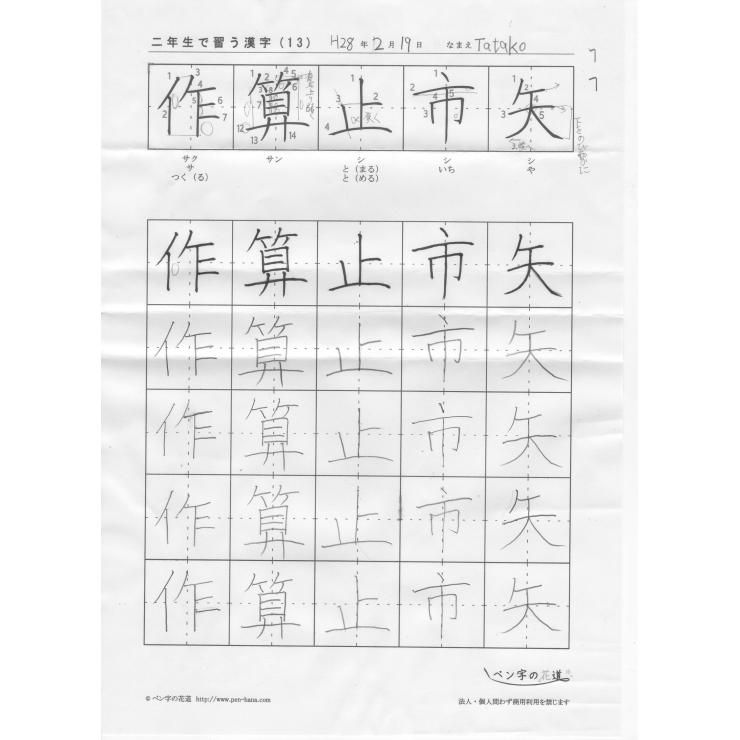 二年生で習う漢字(13) H28年12月19日 なまえ Tatako
作 算 止 市 矢
サク サン シ シ シ
サ と(まる) いち や
つく(る) と(める)
作 算 止 市 矢
作 算 止 市 矢
作 算 止 市 矢
作 算 止 市 矢
作 算 止 市 矢
ペン字の花道
© ペン字の花道 http://www.pen-hana.com 法人・個人問わず商用利用を禁じます